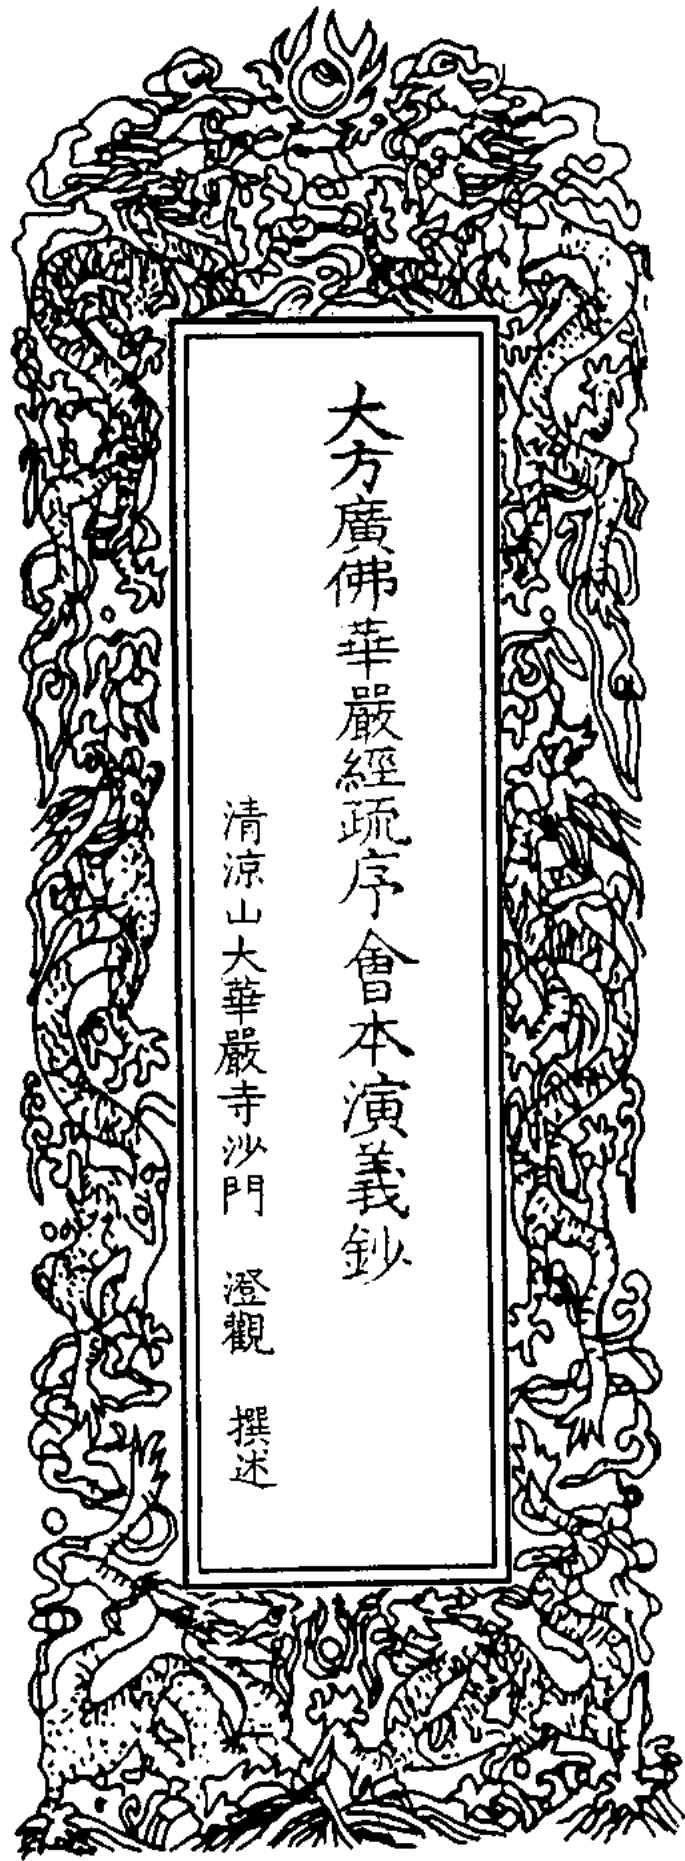 大方廣佛華嚴經疏序會本演義鈔
清涼山大華嚴寺沙門 澄觀 撰述